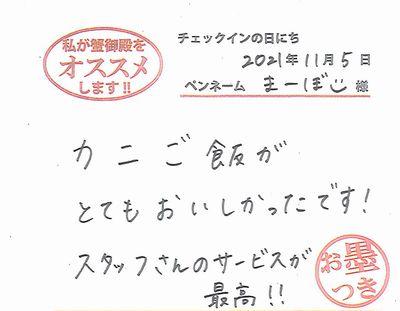 私が蟹御殿を
オススメ
します!!
チェックインの日にち
2021年11月5日
ペンネーム まーぼー 様
カニご飯が
とてもおいしかったです!
スタッフさんのサービスが
最高!!
お墨
つき